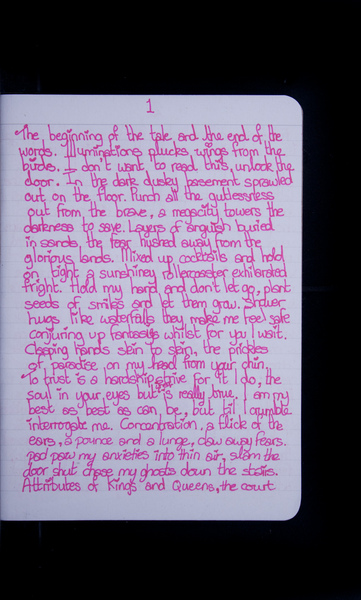 1
The beginning of the tale and the end of the
words. Illuminations plucks wings from the
birds. I don't want to read this, unlock the
door. In the dark dusky basement sprawled
out on the floor. Punch all the gutlessness
out from the brave, a megacity towers the
darkness to save. Layers of anguish buried
in sands, the fear hushed away from the
glorious lands. Mixed up cocktails and hold
on tight a sunshiney rollercoaster exhilarated
fright. Hold my hand and don't let go, plant
seeds of smiles and let them grow. Shower
hugs like waterfalls they make me feel safe
conjuring up fantasys whilst for you I wait.
Clasping hands skin to skin, the prickles
of paradise on my head from your chin.
To trust is a hardship strive for it I do, the
soul in your eyes but is really true. I am my
best as best as can be, but til I crumble
interrogate me. Concentration, a flick of the
ears, a pounce and a lunge, claw away fears.
pad paw my anxieties into thin air, slam the
door shut chase my ghosts down the stairs.
Attributes of Kings and Queens, the court